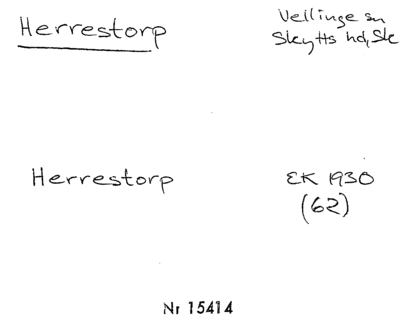 Herrestorp
Vellinge sn
Skytts hd, Sk
Herrestorp
EK 1930
(62)
Nr 15414